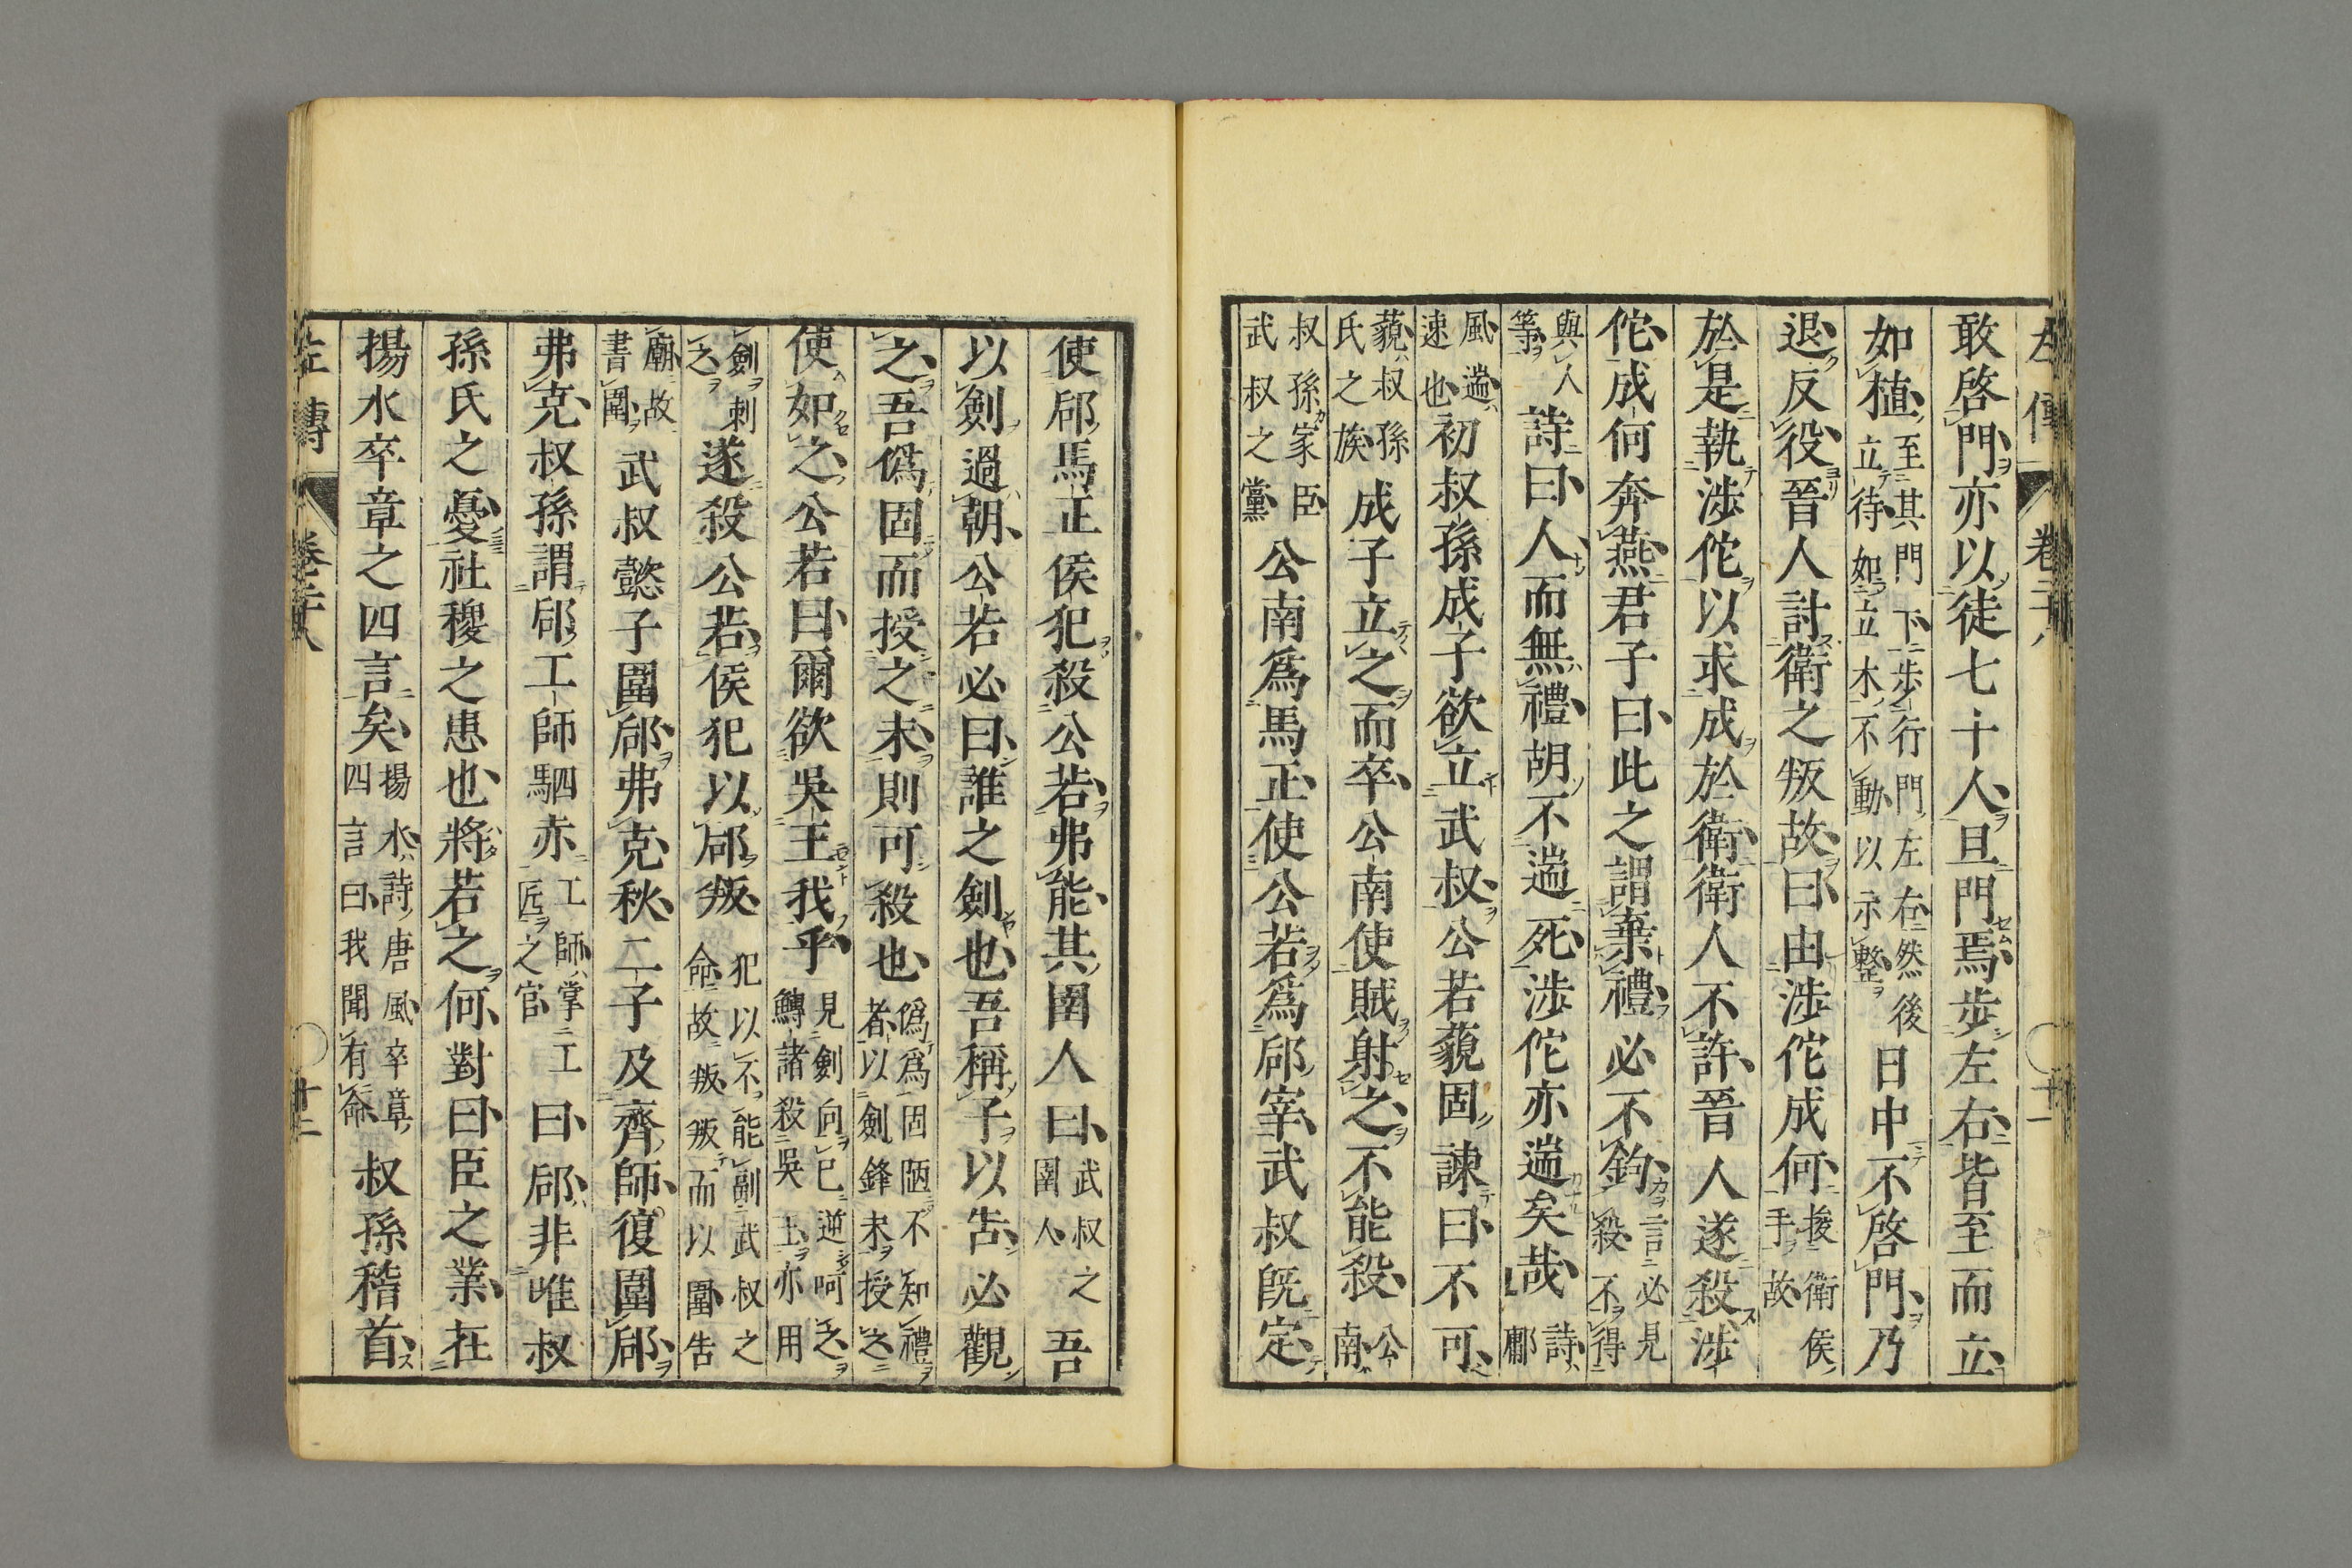 左傳 卷二十八 十一
敢啓門亦以徒七十人旦門焉步左右皆至而立
如植至其門下步行門左右然後立待如立木不動以示整日中不啓門乃
退反役晉人討衛之叛故曰由涉佗成何捘衛侯手故
於是執涉佗以求成於衛衛人不許晉人遂殺涉
佗成何奔燕君子曰此之謂棄禮必不鈞言必見殺不得
與人等詩曰人而無禮胡不遄死涉佗亦遄矣哉詩鄘
風遄速也初叔孫成子欲立武叔公若藐固諫曰不可
藐叔孫氏之族成子立之而卒公南使賊射之不能殺公南
叔孫家臣武叔之黨公南爲馬正使公若爲郈宰武叔旣定
使郈馬正侯犯殺公若弗能其圉人曰武叔之圉人吾
以劍過朝公若必曰誰之劍也吾稱子以吿必觀
之吾僞固而授之末則可殺也僞爲固陋不知禮者以劍鋒末授之
使如之公若曰爾欲吳王我乎見劍向己逆呵之鱄諸殺吳王亦用
劍刺之遂殺公若侯犯以郈叛犯以不能副武叔之命故叛叛而以圍吿
廟故書圍武叔懿子圍郈弗克秋二子及齊師復圍郈
弗克叔孫謂郈工師駟赤工師掌工匠之官曰郈非唯叔
孫氏之憂社稷之患也將若之何對曰臣之業在
揚水卒章之四言矣揚水詩唐風卒章四言曰我聞有命叔孫稽首
左傳 卷二十八 十二